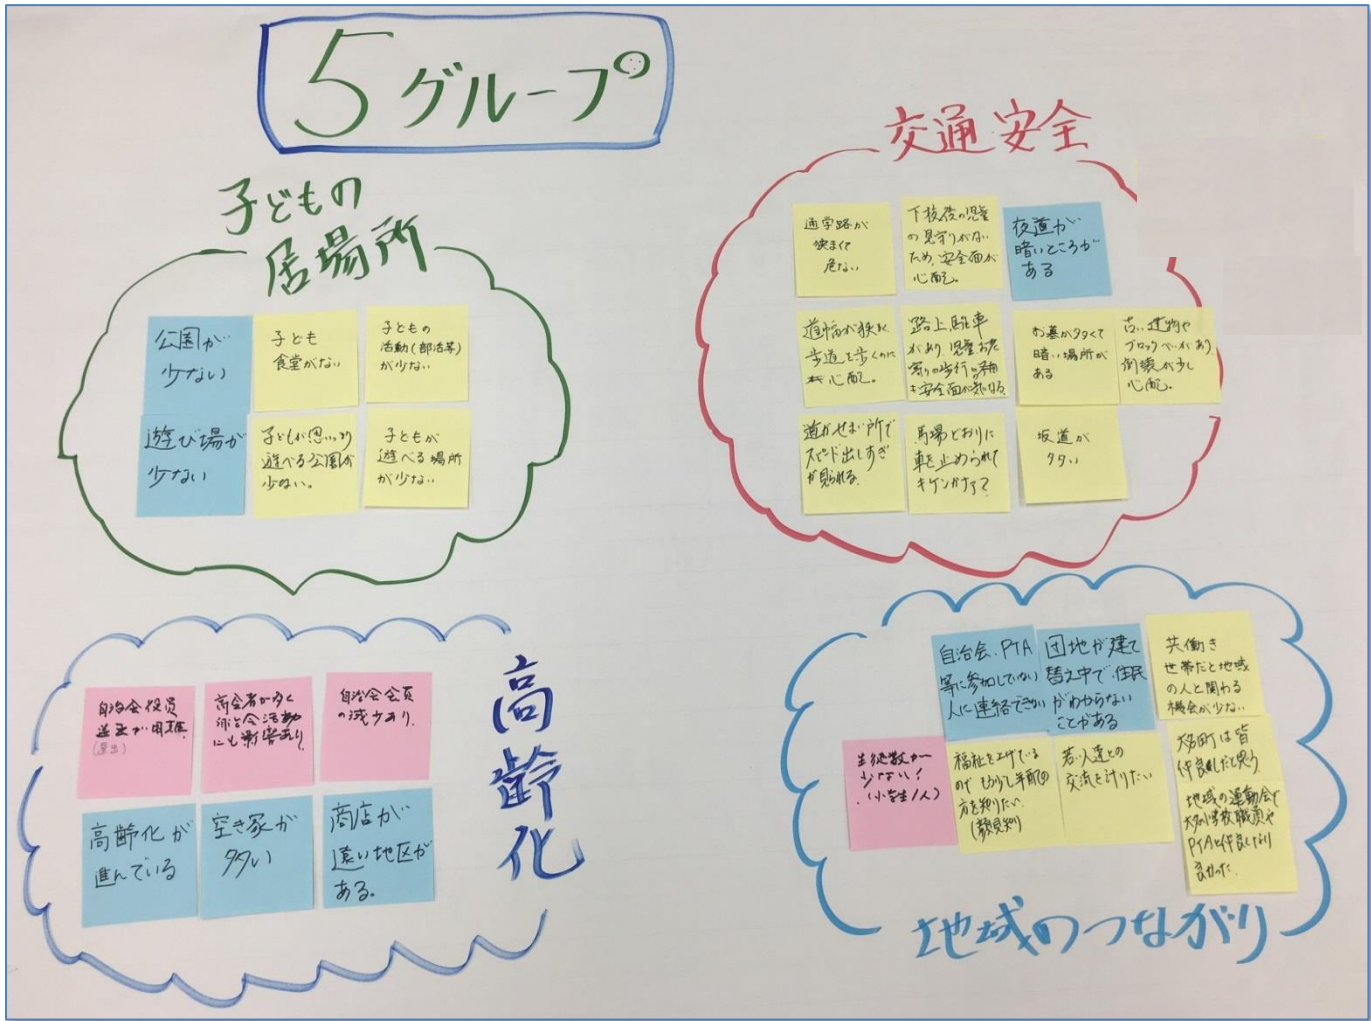 5グループ
子どもの
居場所
公園が
少ない
子ども
食堂がない
子どもの
活動(部活等)
が少ない
遊び場が
少ない
子どもが思いっきり
遊べる公園が
少ない。
子どもが
遊べる場所
が少ない
交通安全
通学路が
狭まくて
危ない
下校後の児童
の見守りがない
ため、安全面が
心配。
夜道が
暗いところが
ある
道幅が狭く
歩道を歩くのに
心配。
路上駐車
があり、児童お年
寄りの歩行
安全面が気になる
お墓が多くて
暗い場所が
ある
古い建物や
ブロックべいがあり
倒壊が少し
心配。
道がせまい所で
スピード出しすぎ
が見られる。
馬場どおりに
車を止められて
キケンかナァ?
坂道が
多い
高齢化
自治会役員
選出が困難
(選出)
高会者が多く
にも影響あり。
自治会会員
の減少あり。
高齢化が
進んでいる
空き家が
多い
商店が
遠い地区が
ある。
地域のつながり
自治会、PTA
等に参加していない
人に連絡できない
団地が建て
替え中で、住民
がわからない
ことがある
共働き
世帯だと地域
の人と関わる
機会が少ない。
生徒数が
少ない!
(小学生1人)
福祉を上げている
ので もう少し年配の
方を知りたい。
(顔見知り
若い人達との
交流を計りたい
町は皆
仲良しだと思う
地域の運動会で
小学校職員や
PTAと仲良しなり
良かった。